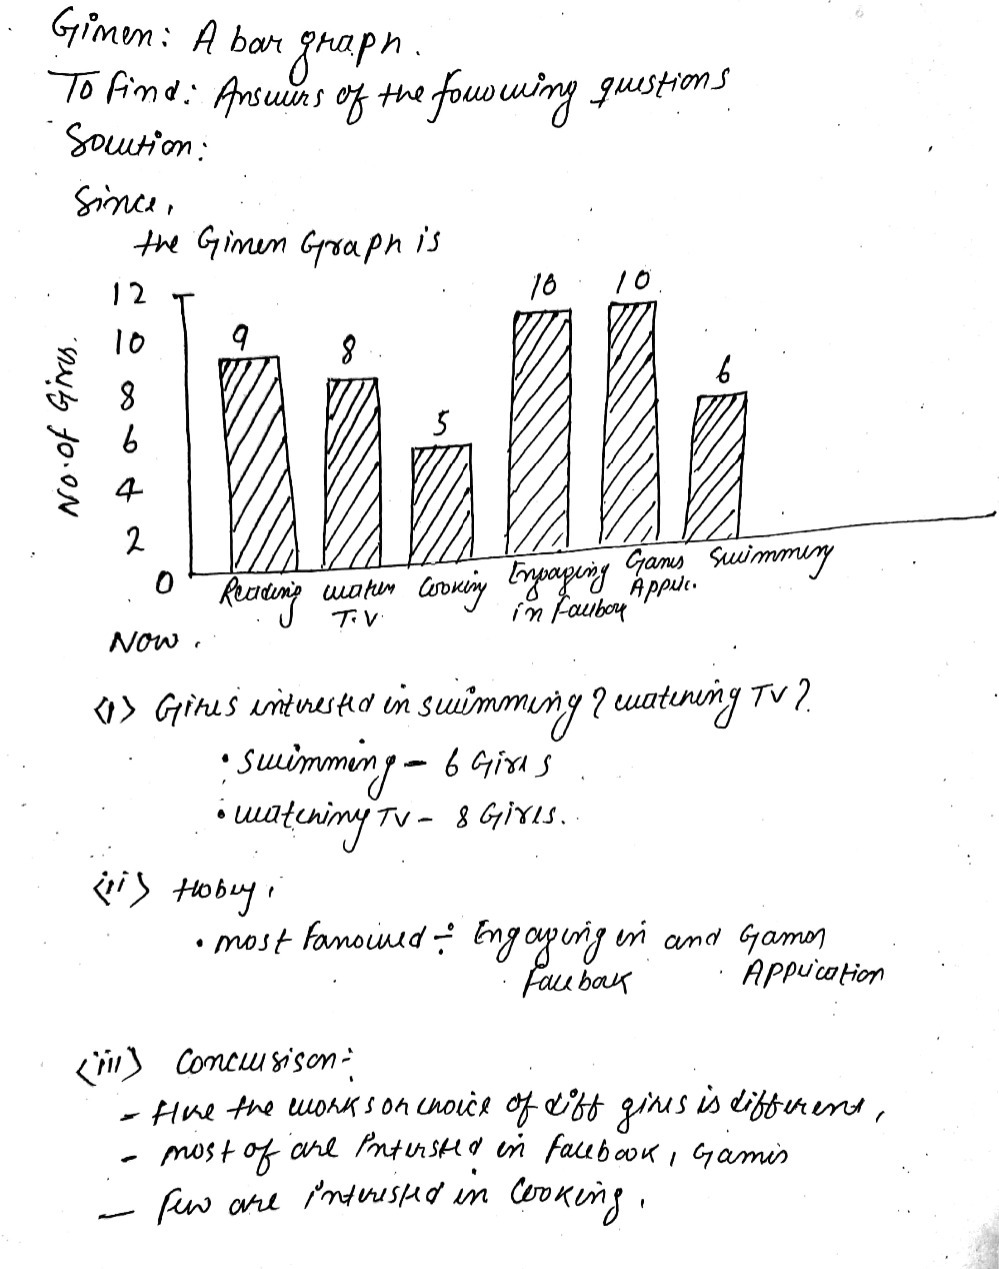 Given: A bar graph.
To find: Answers of the following questions
Solution:
Since,
the Given Graph is
12
10
8
6
4
2
0
No. of Girls.
9
8
5
10
10
6
Reading
watch
T.V
Cooking
Engaging
in Facebook
Games
Applic.
Swimming
Now.
<i> Girls interested in swimming? watching TV?
• swimming - 6 Girls
• watching TV - 8 Girls.
<ii> Hobby,
• most favoured ÷ Engaging in and Games
Facebook Application
<iii> Conclusison:-
- Here the works or choice of diff girls is different,
- most of are intersted in facebook, Games
- few are interested in Cooking.